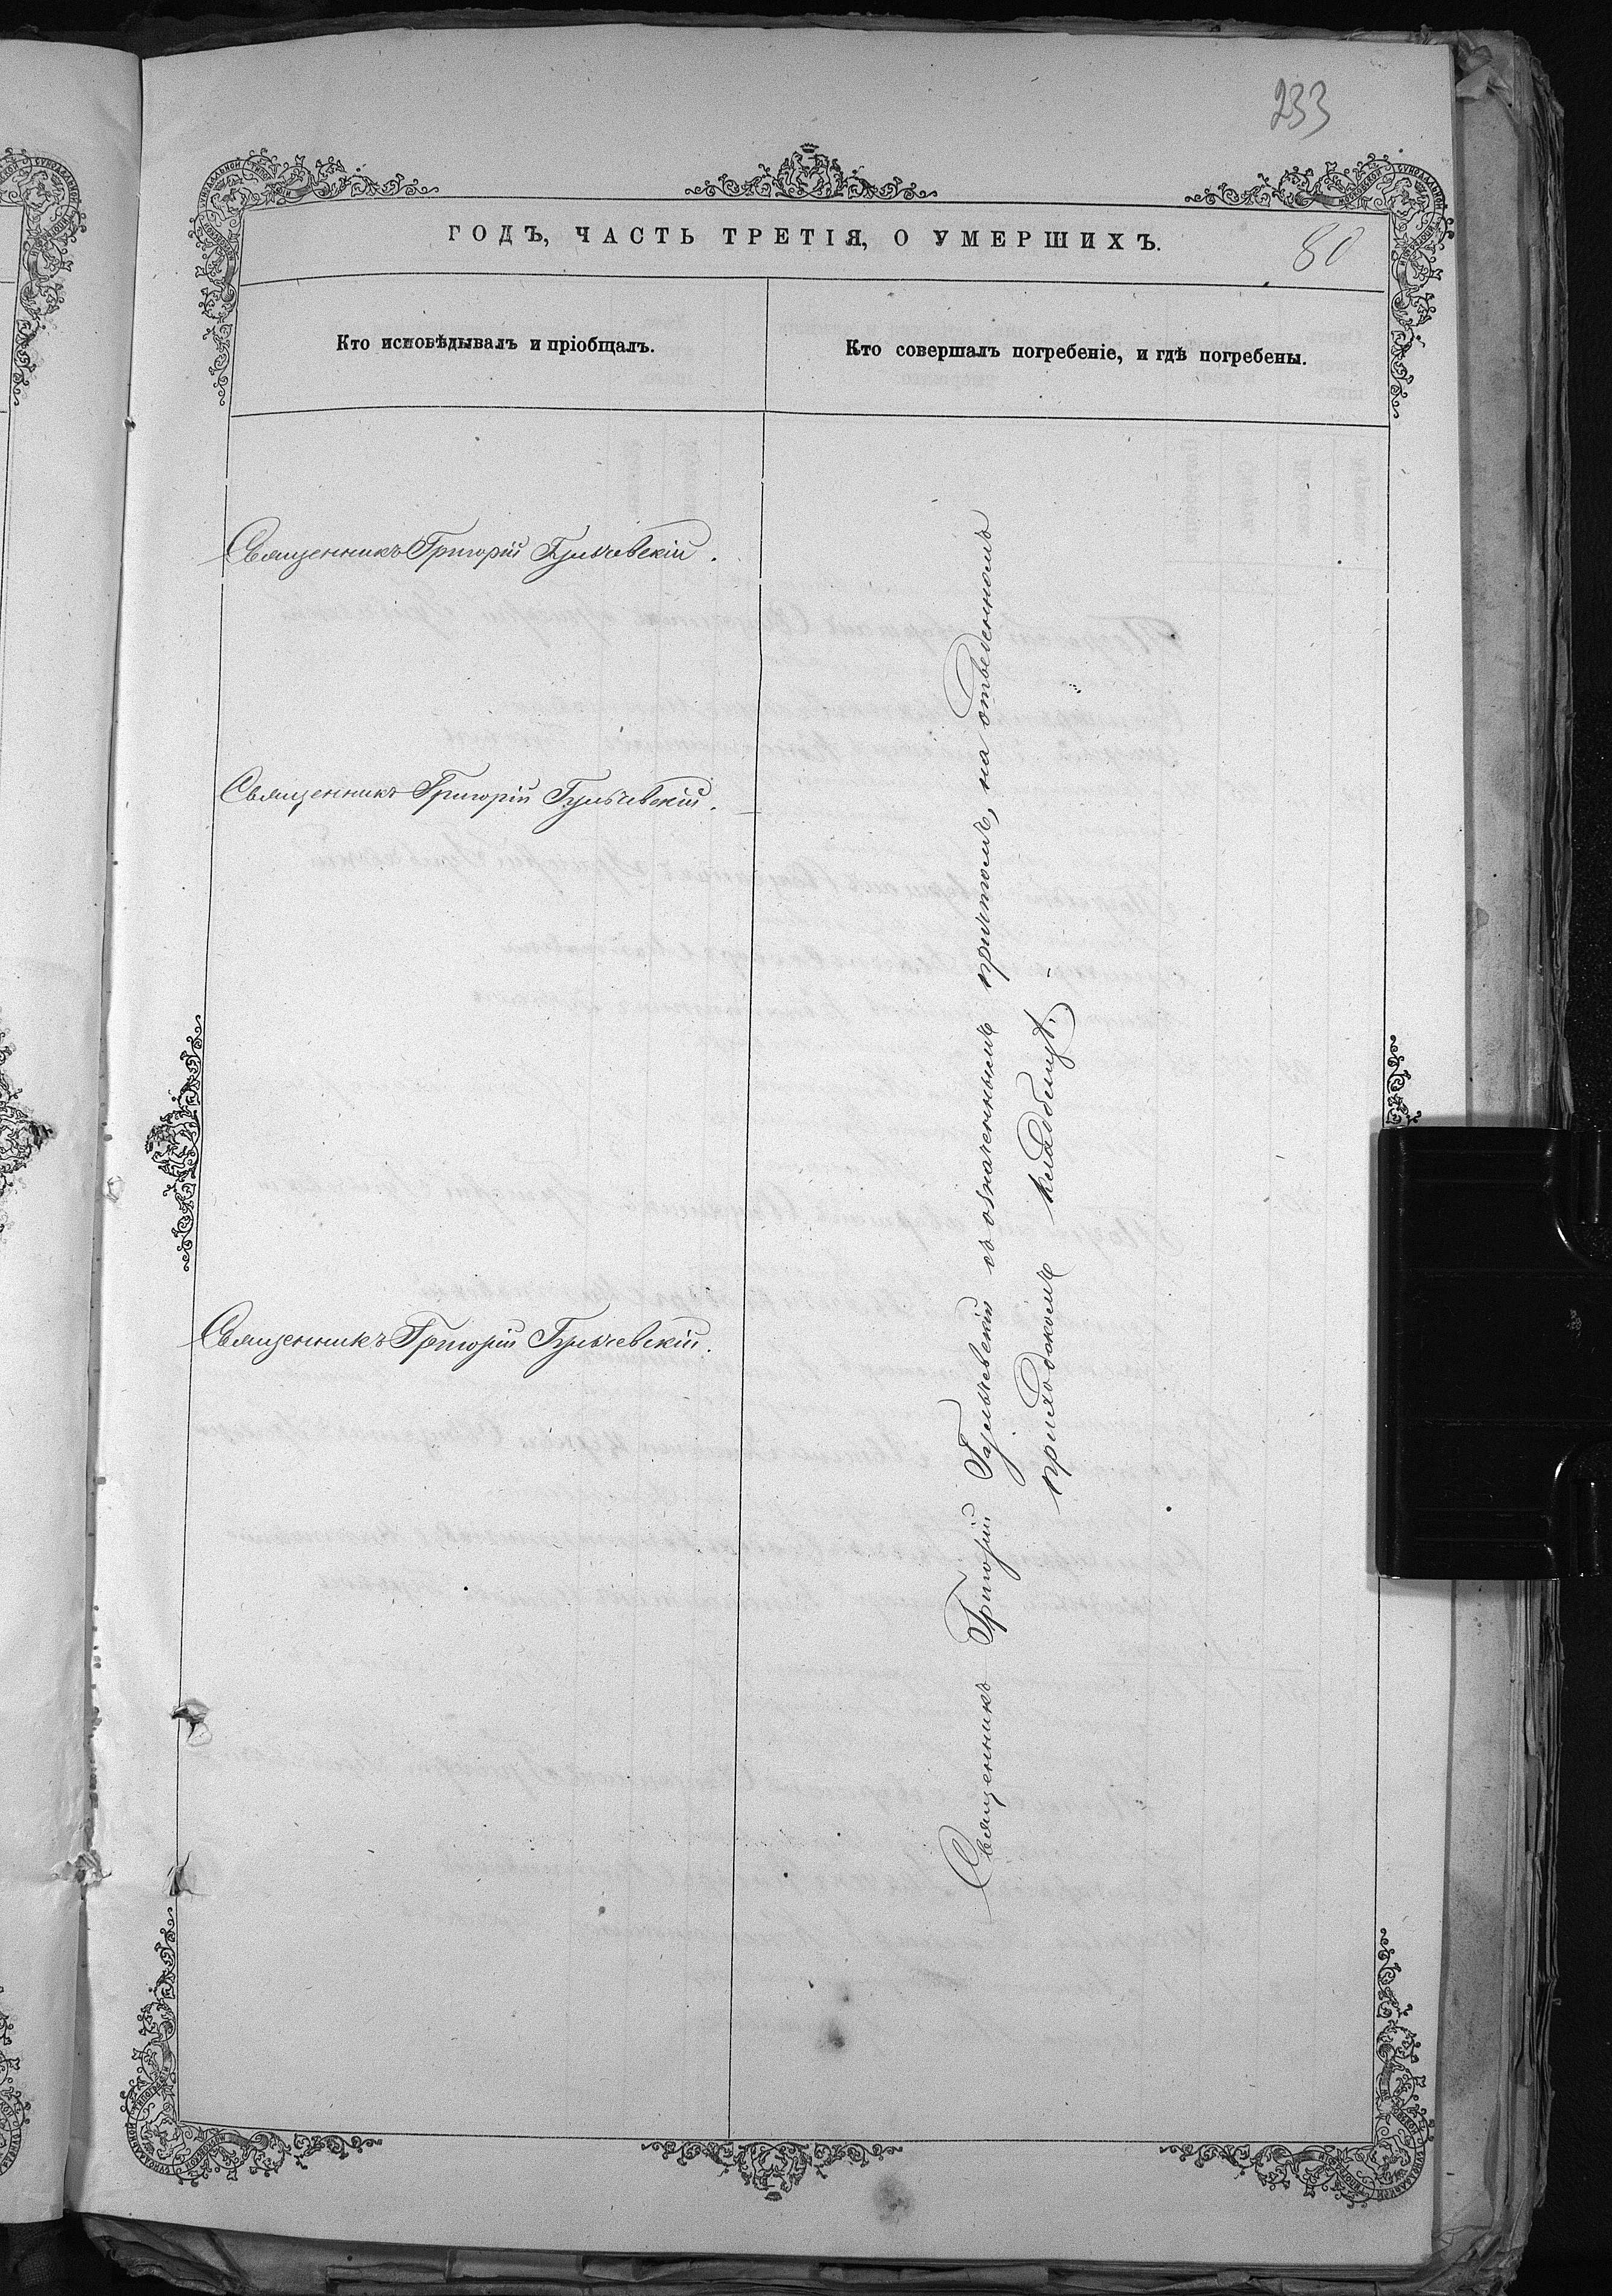 233
ГОДЪ, ЧАСТЬ ТРЕТІЯ, О УМЕРШИХЪ.
80
Кто исповѣдывалъ и пріобщалъ.
Кто совершалъ погребеніе, и гдѣ погребены.
Священникъ Григорій Гульчевскій.
Священникъ Григорій Гульчевскій.
Священникъ Григорій Гульчевскій.
Священникъ Григорій Гульчевскій съ означеннымъ причтомъ, на отведенномъ
приходскомъ кладбищѣ.